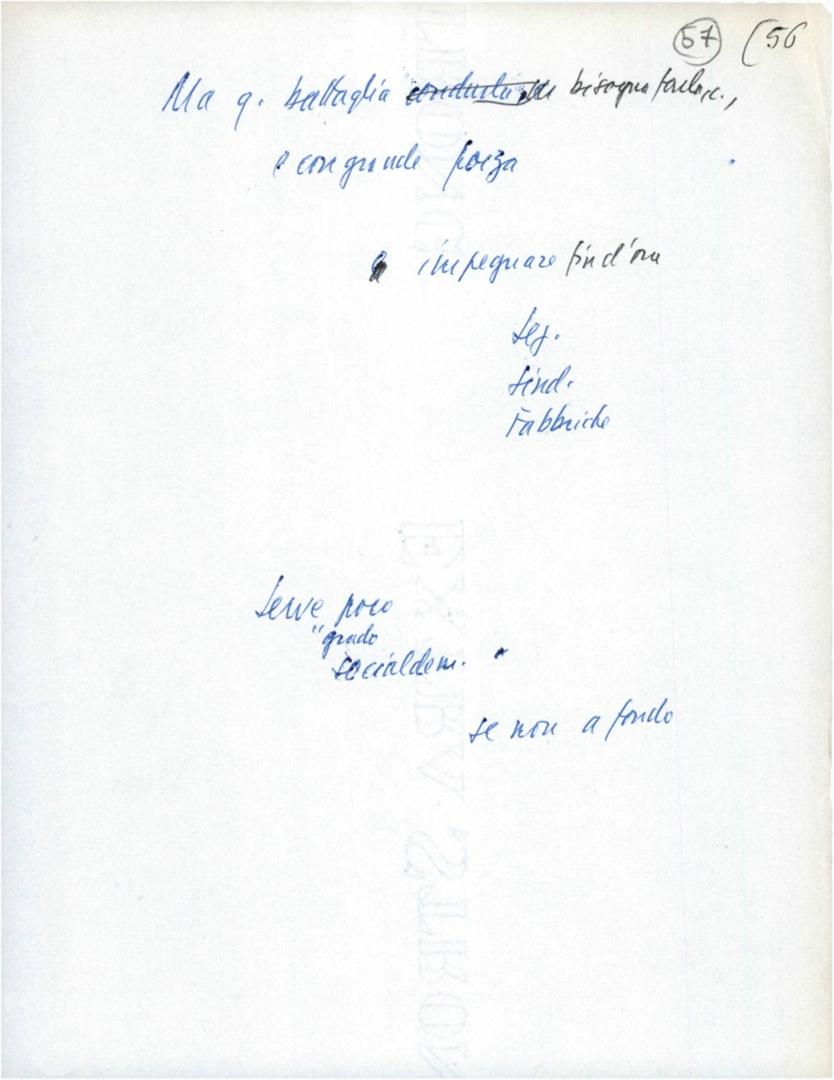 57 (56
Ma q. battaglia bisogna farla.,
e con grande forza
e impegnare fin d'ora
Seg.
Sind.
Fabbriche
Serve poco
"grado
socialdem."
se non a fondo